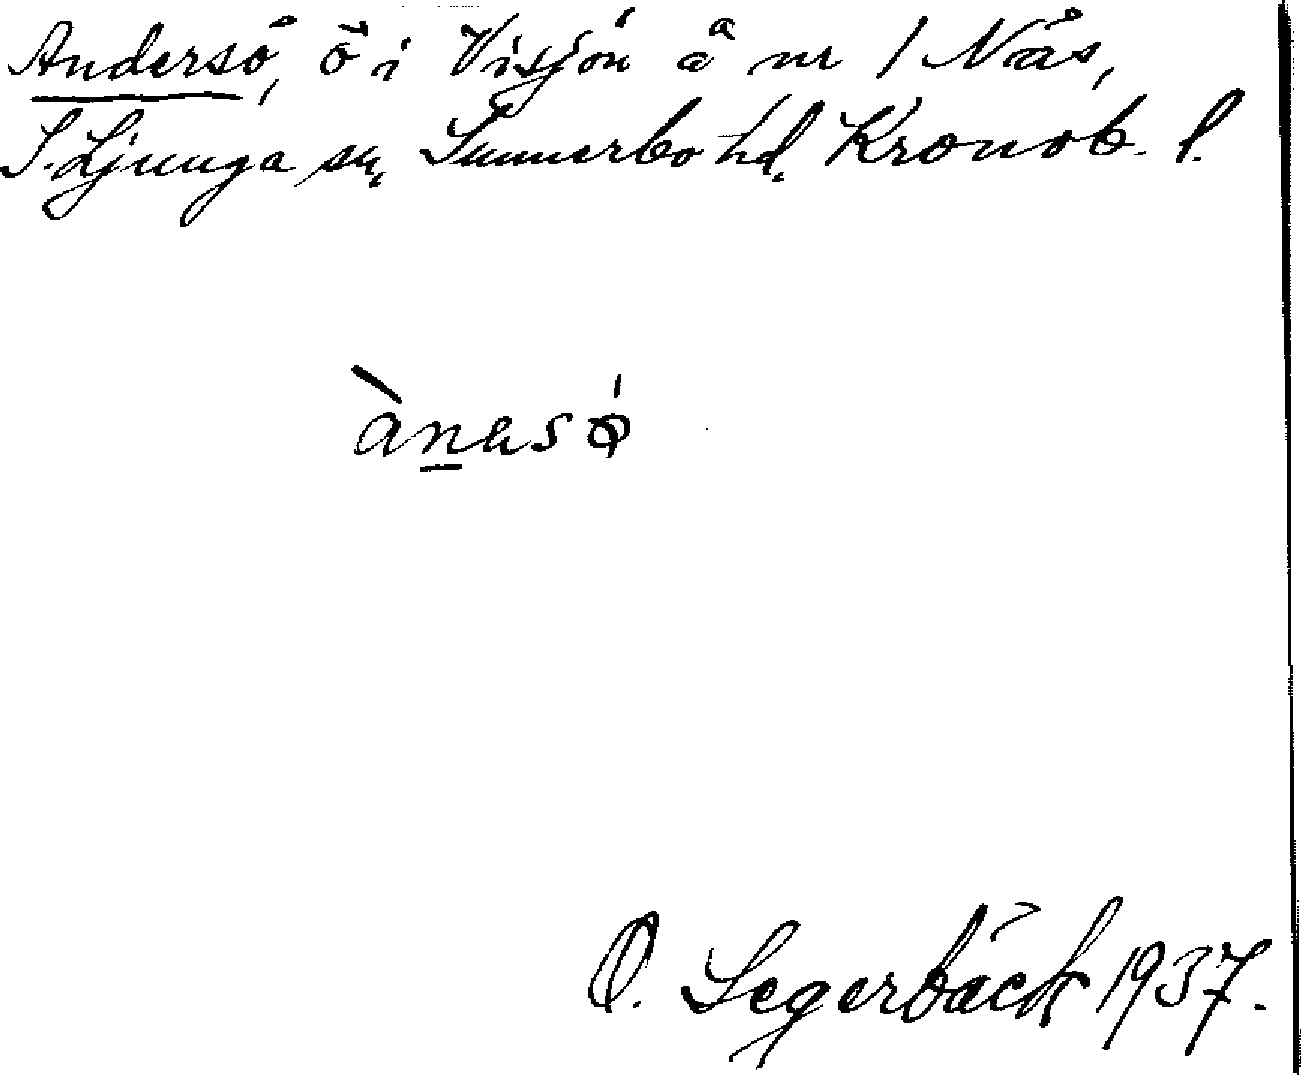 Andersö, ö i Visjön å nr 1 Näs,
S. Ljunga sn, Sunnerbo hd, Kronob. l.
ànasǿ
O. Segerbäck 1937.